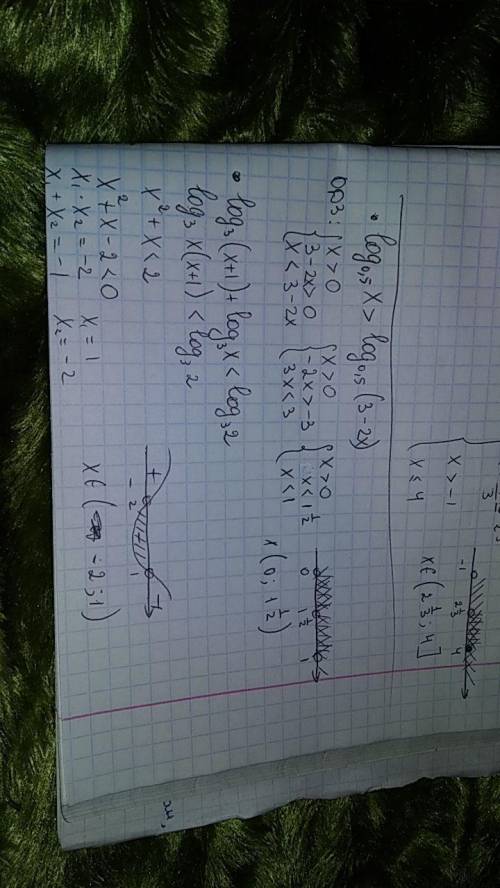 x > -1
x ≤ 4
-1 2 1/3 4
x∈(2 1/3; 4]
• log₀,₅ x > log₀,₅ (3-2x)
ОДЗ: { x > 0 { x > 0 { x > 0
3-2x > 0 -2x > -3 x < 1 1/2
x < 3-2x 3x < 3 x < 1
0 1 1/2 1
x (0; 1 1/2)
• log₃ (x+1) + log₃ x < log₃ 2
log₃ x(x+1) < log₃ 2
x² + x < 2
x² + x - 2 < 0
x₁ · x₂ = -2 x₁ = 1
x₁ + x₂ = -1 x₂ = -2
+ - +
-2 1
x∈(-2; 1)